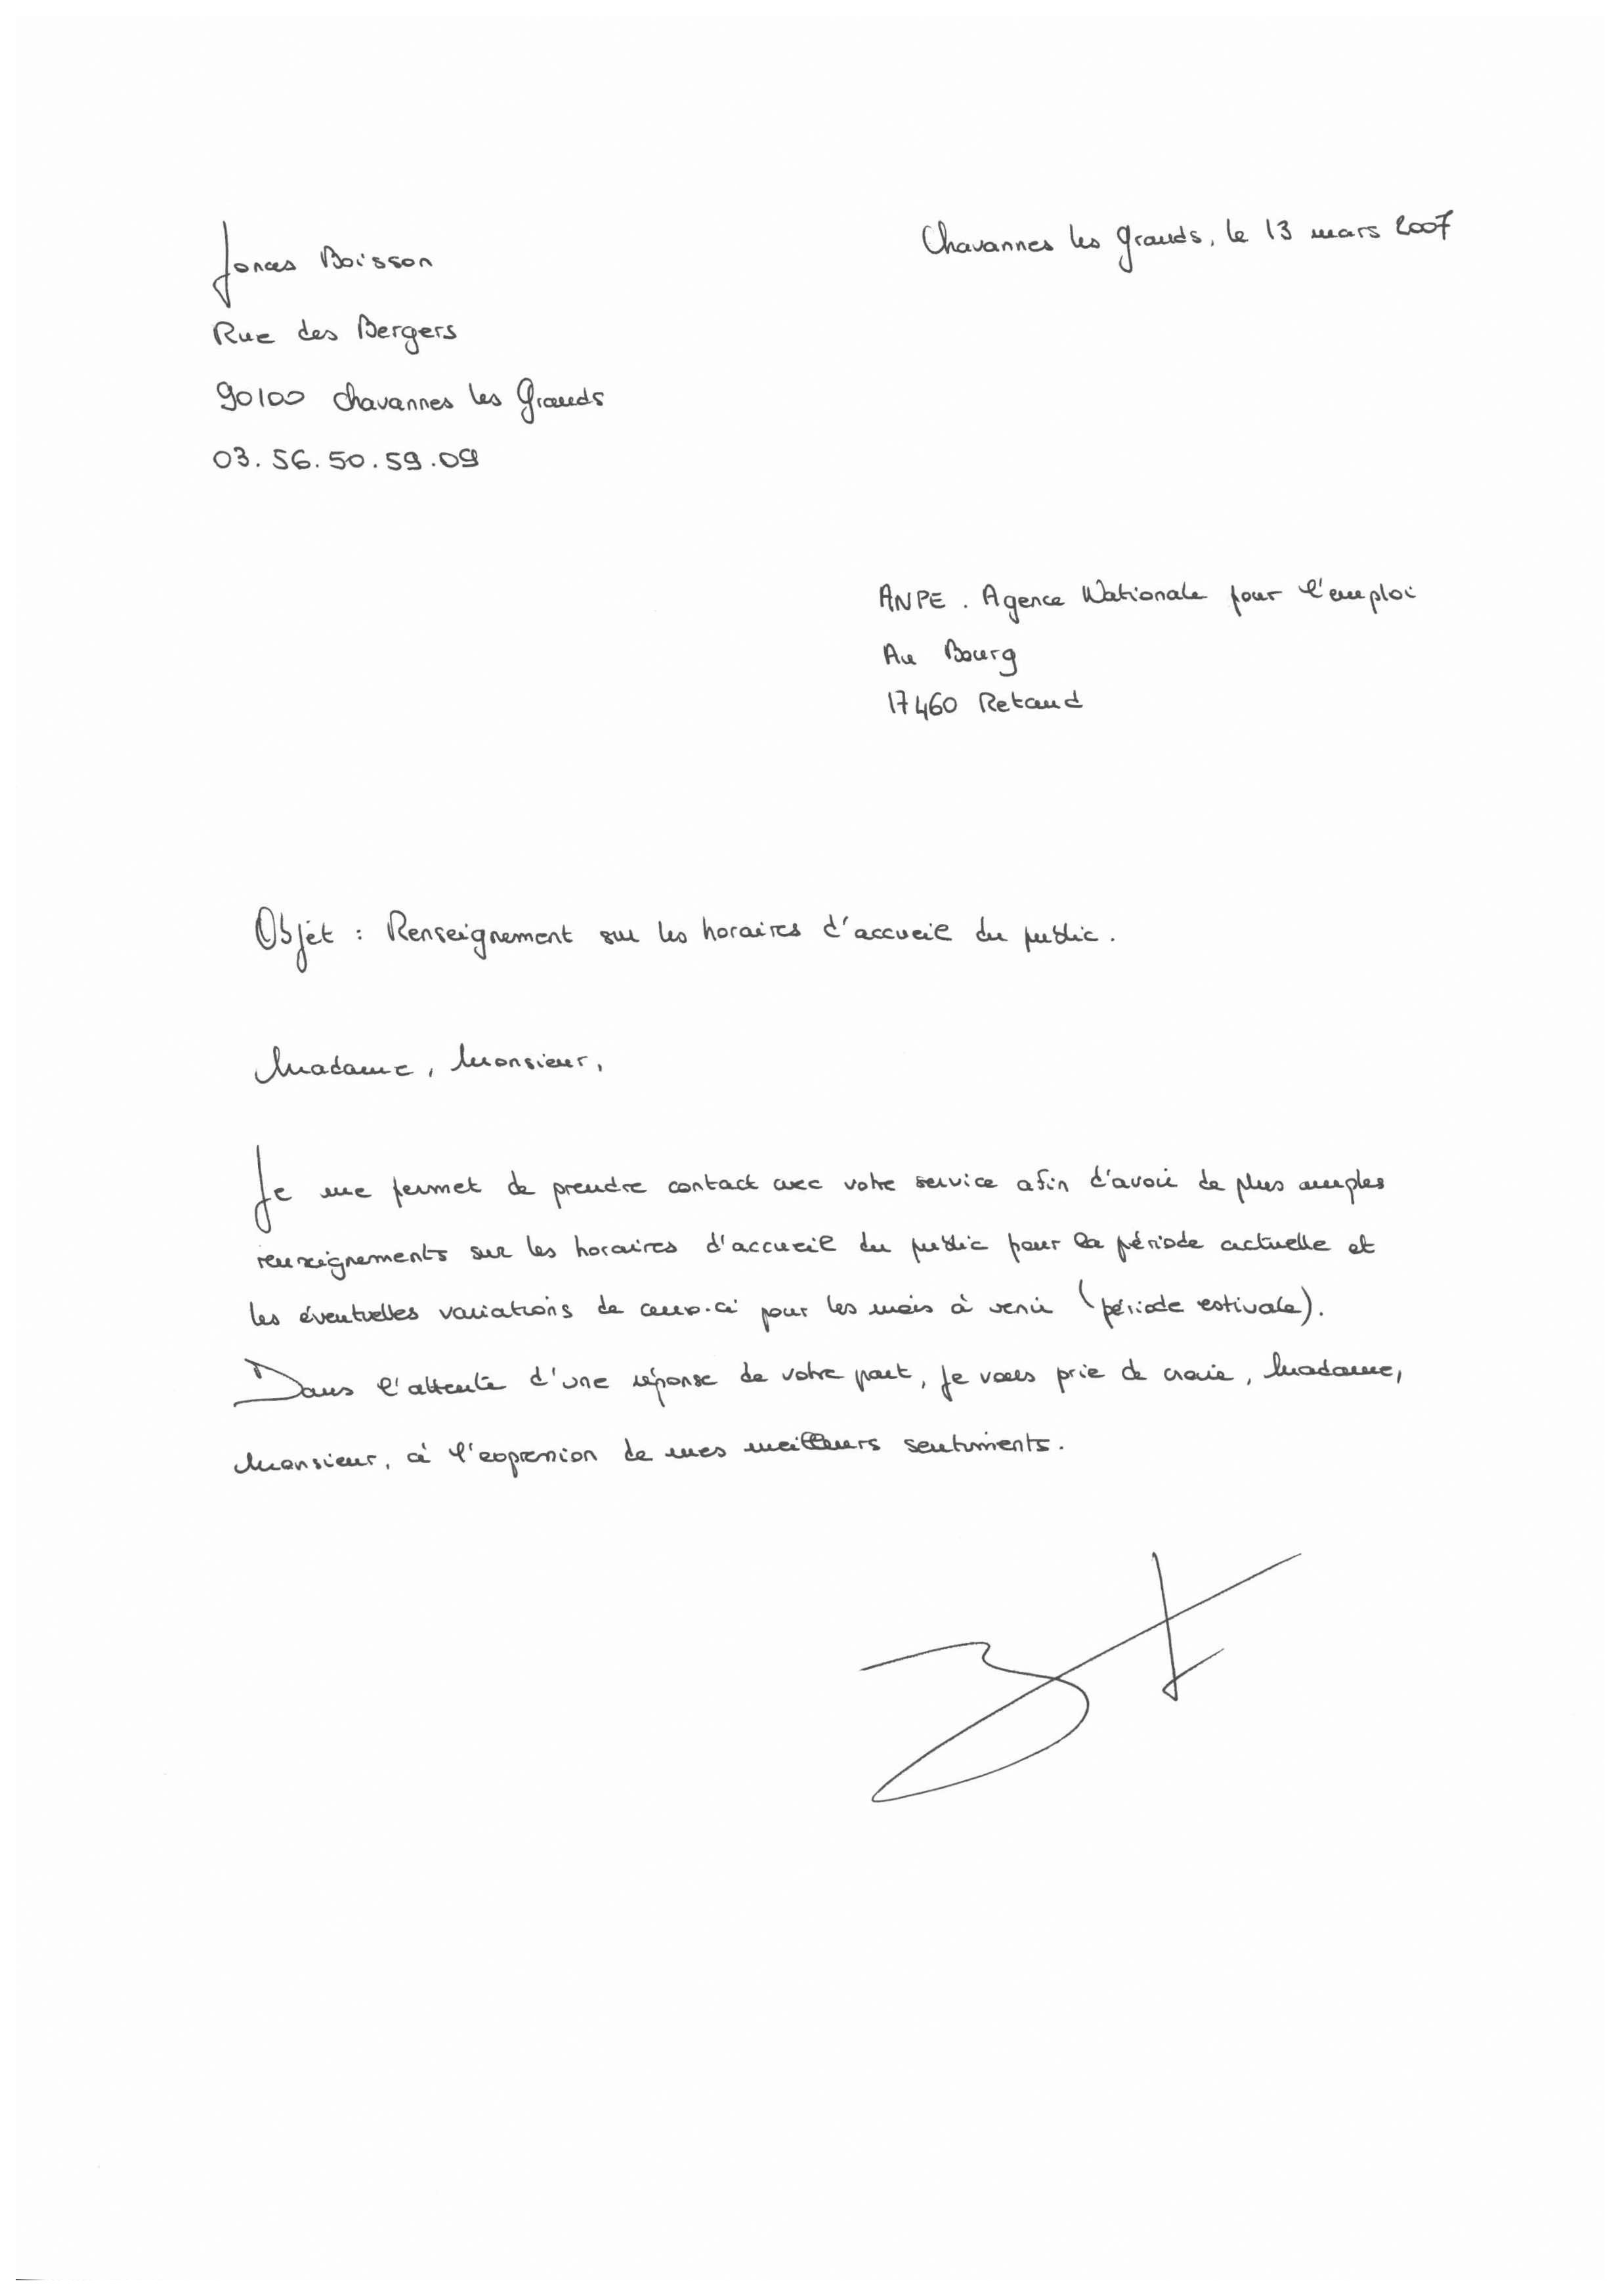 Jonas Boisson
Chavannes les Grands, le 13 mars 2007
Rue des Bergers
90100 Chavannes les Grands
03.56.50.59.09
ANPE. Agence Nationale pour l'emploi
Au Bourg
17460 Retaud
Objet : Renseignement sur les horaires d'accueil du public.
Madame, Monsieur,
Je me permet de prendre contact avec votre service afin d'avoir de plus amples
renseignements sur les horaires d'accueil du public pour la période actuelle et
les éventuelles variations de ceux-ci pour les mois à venir (période estivale).
Dans l'attente d'une réponse de votre part, je vous prie de croire, Madame,
Monsieur, à l'expression de mes meilleurs sentiments.